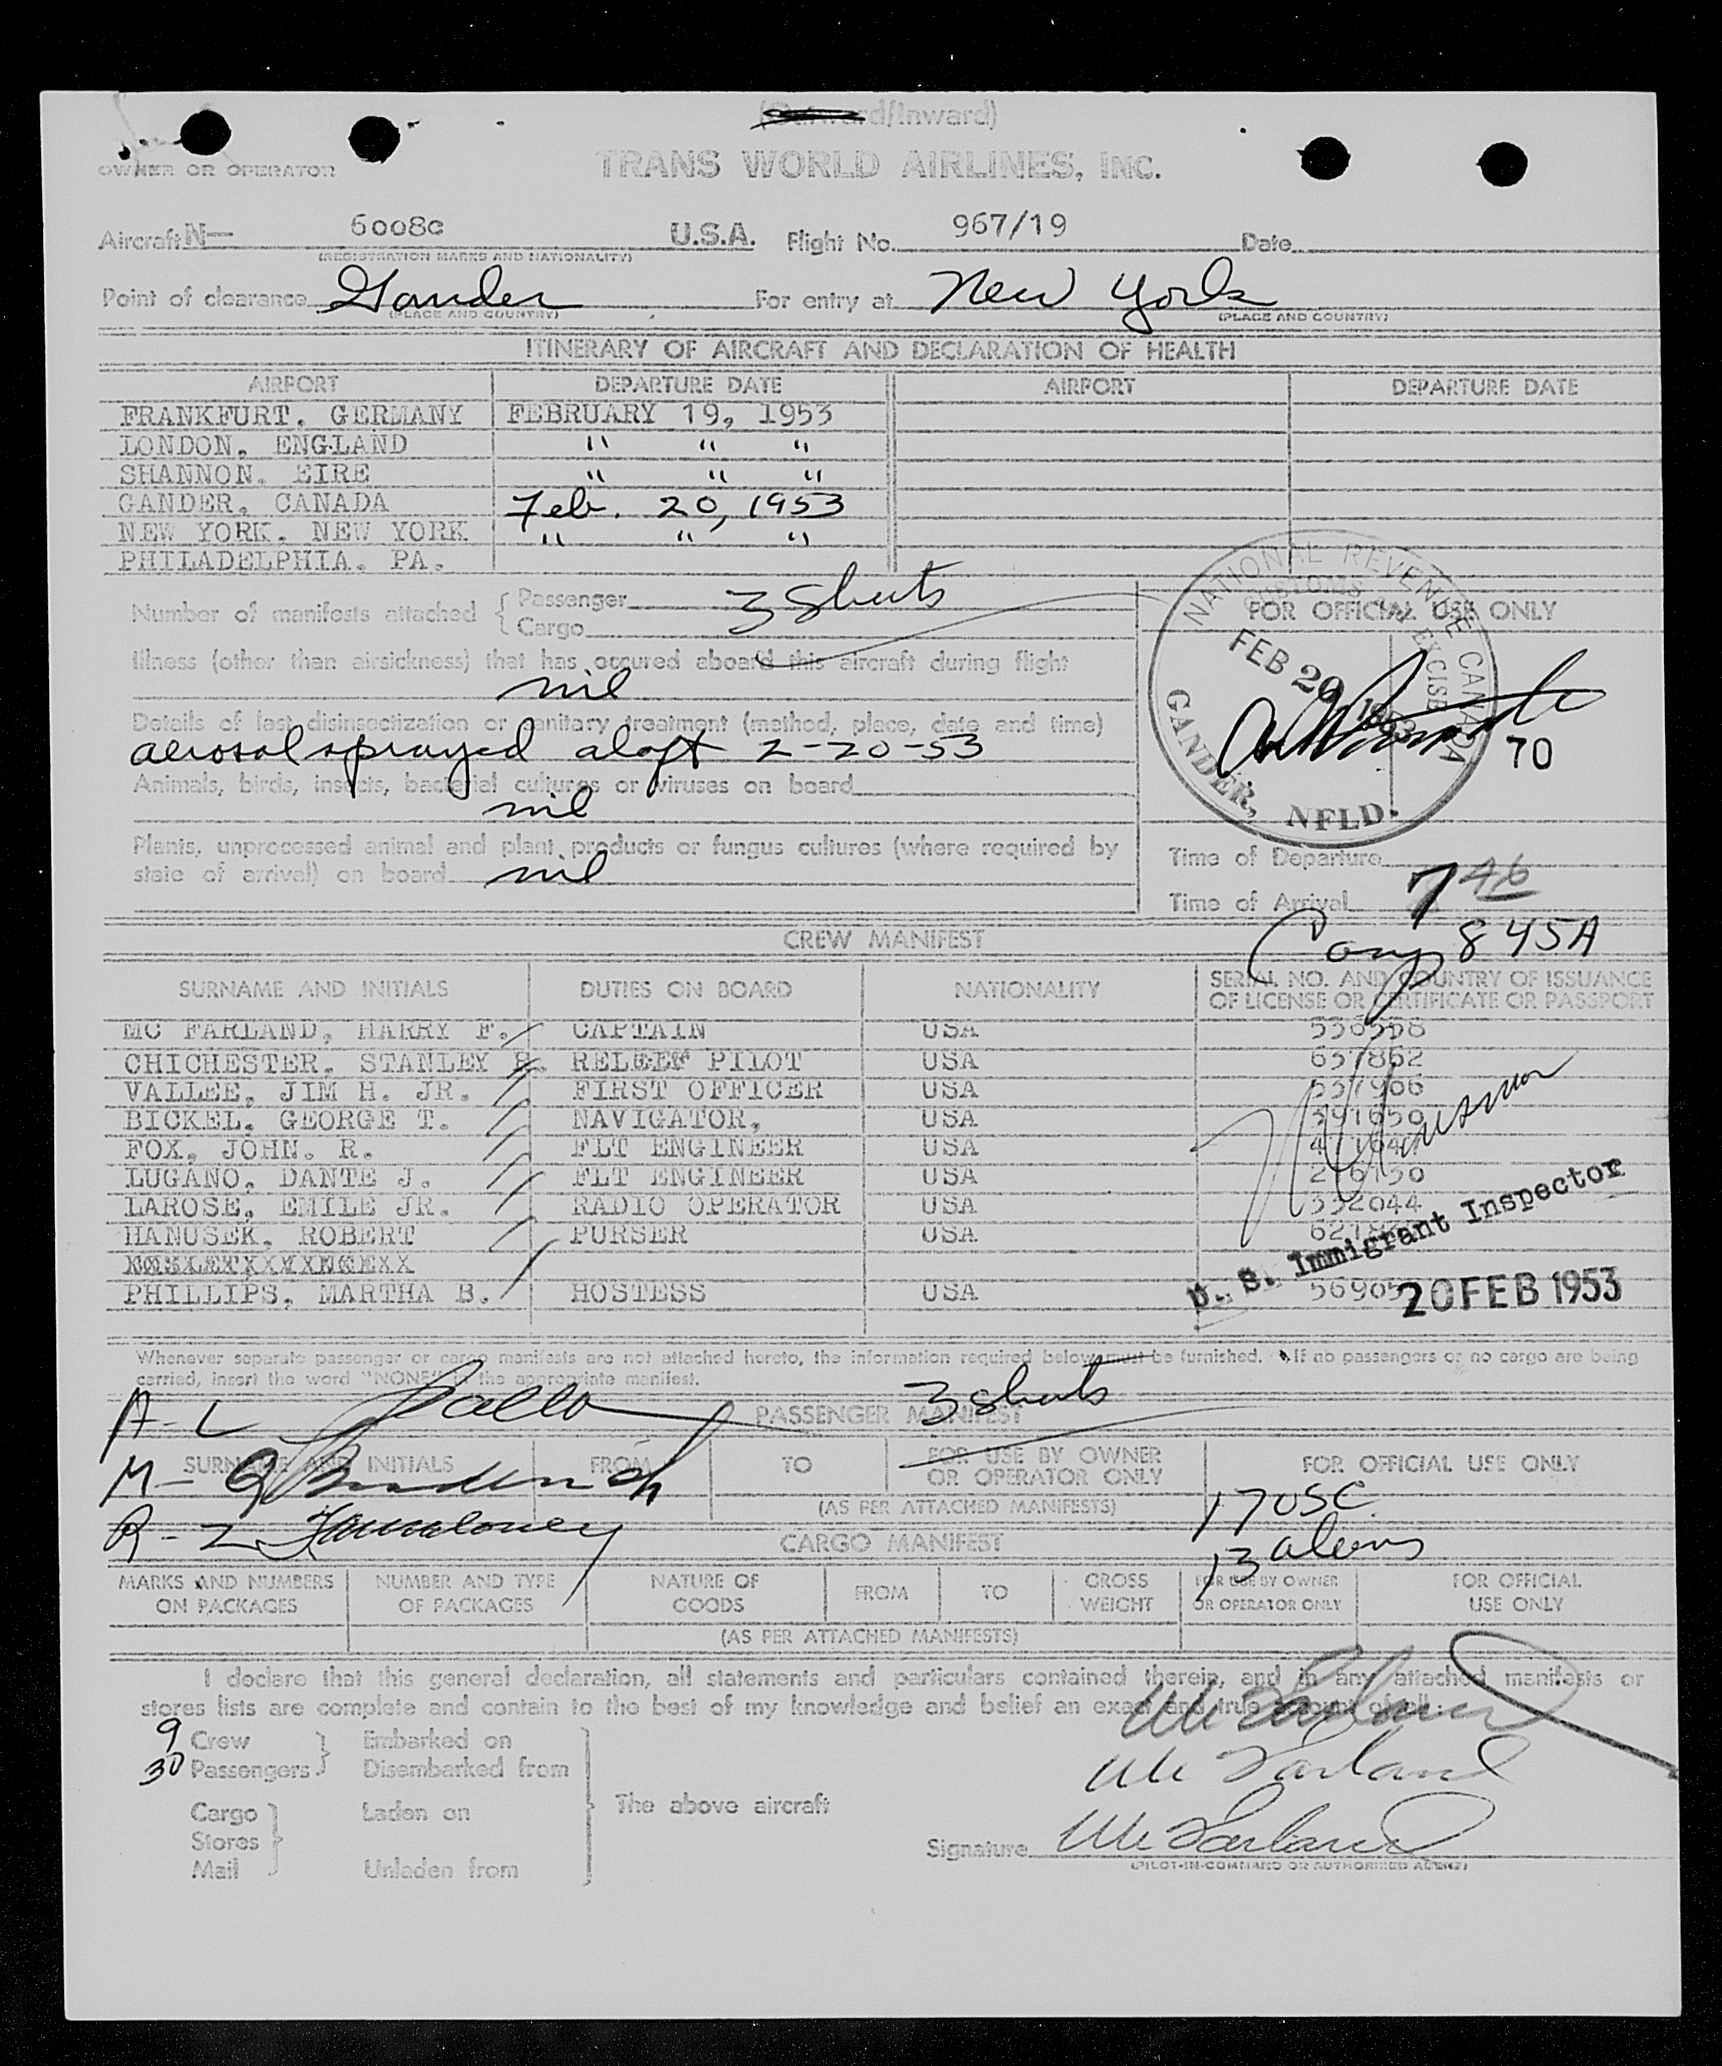 (Outward/Inward)
OWNER OR OPERATOR TRANS WORLD AIRLINES, INC.
Aircraft N— 6008C U.S.A. Flight No. 967/19 Date
(REGISTRATION MARKS AND NATIONALITY)
Point of clearance Gander For entry at New York
(PLACE AND COUNTRY) (PLACE AND COUNTRY)
ITINERARY OF AIRCRAFT AND DECLARATION OF HEALTH
AIRPORT DEPARTURE DATE AIRPORT DEPARTURE DATE
FRANKFURT. GERMANY FEBRUARY 19, 1953
LONDON. ENGLAND " " "
SHANNON. EIRE " " "
GANDER. CANADA Feb. 20, 1953
NEW YORK. NEW YORK " " "
PHILADELPHIA. PA.
Number of manifests attached { Passenger 3 Sheets
Cargo
FOR OFFICIAL USE ONLY
NATIONAL REVENUE CANADA
CUSTOMS EXCISE
FEB 20 1953
GANDER, NFLD.
70
Illness (other than airsickness) that has occured aboard this aircraft during flight
nil
Details of last disinsectization or sanitary treatment (method, place, date and time)
aerosol sprayed aloft 2-20-53
Animals, birds, insects, bacterial cultures or viruses on board
nil
Plants, unprocessed animal and plant products or fungus cultures (where required by
state of arrival) on board nil
Time of Departure
Time of Arrival 7 46
845A
CREW MANIFEST
SURNAME AND INITIALS DUTIES ON BOARD NATIONALITY SERIAL NO. AND COUNTRY OF ISSUANCE
OF LICENSE OR CERTIFICATE OR PASSPORT
MC FARLAND, HARRY F. CAPTAIN USA
CHICHESTER. STANLEY RELIEF PILOT USA 657862
VALLEE, JIM H. JR. FIRST OFFICER USA 537966
BICKEL. GEORGE T. NAVIGATOR, USA 391650
FOX, JOHN. R. FLT ENGINEER USA
LUGANO, DANTE J. FLT ENGINEER USA
LAROSE, EMILE JR. RADIO OPERATOR USA 332044
HANUSEK, ROBERT PURSER USA
PHILLIPS, MARTHA B. HOSTESS USA
U. S. Immigrant Inspector
20 FEB 1953
Whenever separate passenger or cargo manifests are not attached hereto, the information required below must be furnished. If no passengers or no cargo are being
carried, insert the word "NONE" in the appropriate manifest.
A - L
PASSENGER MANIFEST 3 sheets
SURNAME AND INITIALS FROM TO FOR USE BY OWNER OR OPERATOR ONLY FOR OFFICIAL USE ONLY
M -
(AS PER ATTACHED MANIFESTS) 17 USC
R - Z
CARGO MANIFEST 13 aliens
MARKS AND NUMBERS ON PACKAGES NUMBER AND TYPE OF PACKAGES NATURE OF GOODS FROM TO GROSS WEIGHT FOR USE BY OWNER OR OPERATOR ONLY FOR OFFICIAL USE ONLY
(AS PER ATTACHED MANIFESTS)
I declare that this general declaration, all statements and particulars contained therein, and in any attached manifests or
stores lists are complete and contain to the best of my knowledge and belief an exact and true account of all:
McFarland
9 Crew } Embarked on
30 Passengers } Disembarked from
McFarland
Cargo } Laden on The above aircraft
Stores
Signature McFarland
Mail Unladen from
(PILOT-IN-COMMAND OR AUTHORIZED AGENT)